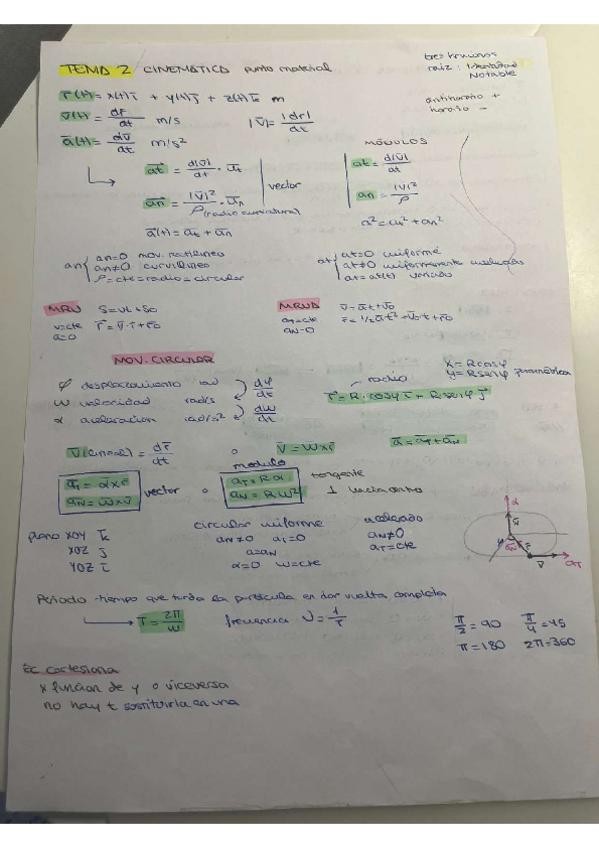 TEMA 2 CINEMÁTICA punto material
tres términos
raiz : Identidad
Notable
antihorario +
horario -
r̄(t) = x(t)ī + y(t)j̄ + z(t)k̄ m
v̄(t) = dr̄/dt m/s |v̄| = |dr|/dt
ā(t) = dv̄/dt m/s²
MÓDULOS
at = d|v̄|/dt · ūt
an = |v̄|²/ρ · ūn
(radio curvatura)
vector
at = d|v̄|/dt
an = |v̄|²/ρ
ā(t) = at + an
a² = at² + an²
an { an=0 mov. rectilineo
an≠0 curvilineo
ρ=cte=radio=circular
at { at=0 uniforme
at≠0 uniformemente
at=at(t) variado
MRU s=vt+so
v=cte r̄=v̄·t+r̄o
a=0
MRUA v̄=āt+v̄o
aT=cte r̄=1/2āt²+v̄o·t+r̄o
aN=0
MOV. CIRCULAR
φ desplazamiento rad
ω velocidad rad/s
α aceleracion rad/s²
dφ/dt
dω/dt
radio
r̄ = R·cosφ ī + R·senφ j̄
x=Rcosφ
y=Rsenφ paramétrica
v̄(lineal) = dr̄/dt o v̄ = ω̄xr̄
ā = āT + āN
modulo
āT = ᾱxr̄
āN = ω̄xv̄
vector o
aT = Rα
aN = Rω²
tangente
⊥ hacia centro
plano XOY k̄
XOZ j̄
YOZ ī
circular uniforme
aN≠0 aT=0
a=aN
α=0 ω=cte
acelerado
aN≠0
aT=cte
α
ω̄
φ
aN
r̄
v̄
aT
Periodo tiempo que tarda la particula en dar vuelta completa
T = 2π/ω frecuencia ν = 1/T
π/2 = 90 π/4 = 45
π = 180 2π = 360
Ec cartesiana
x funcion de y o viceversa
no hay t sustituirla en una